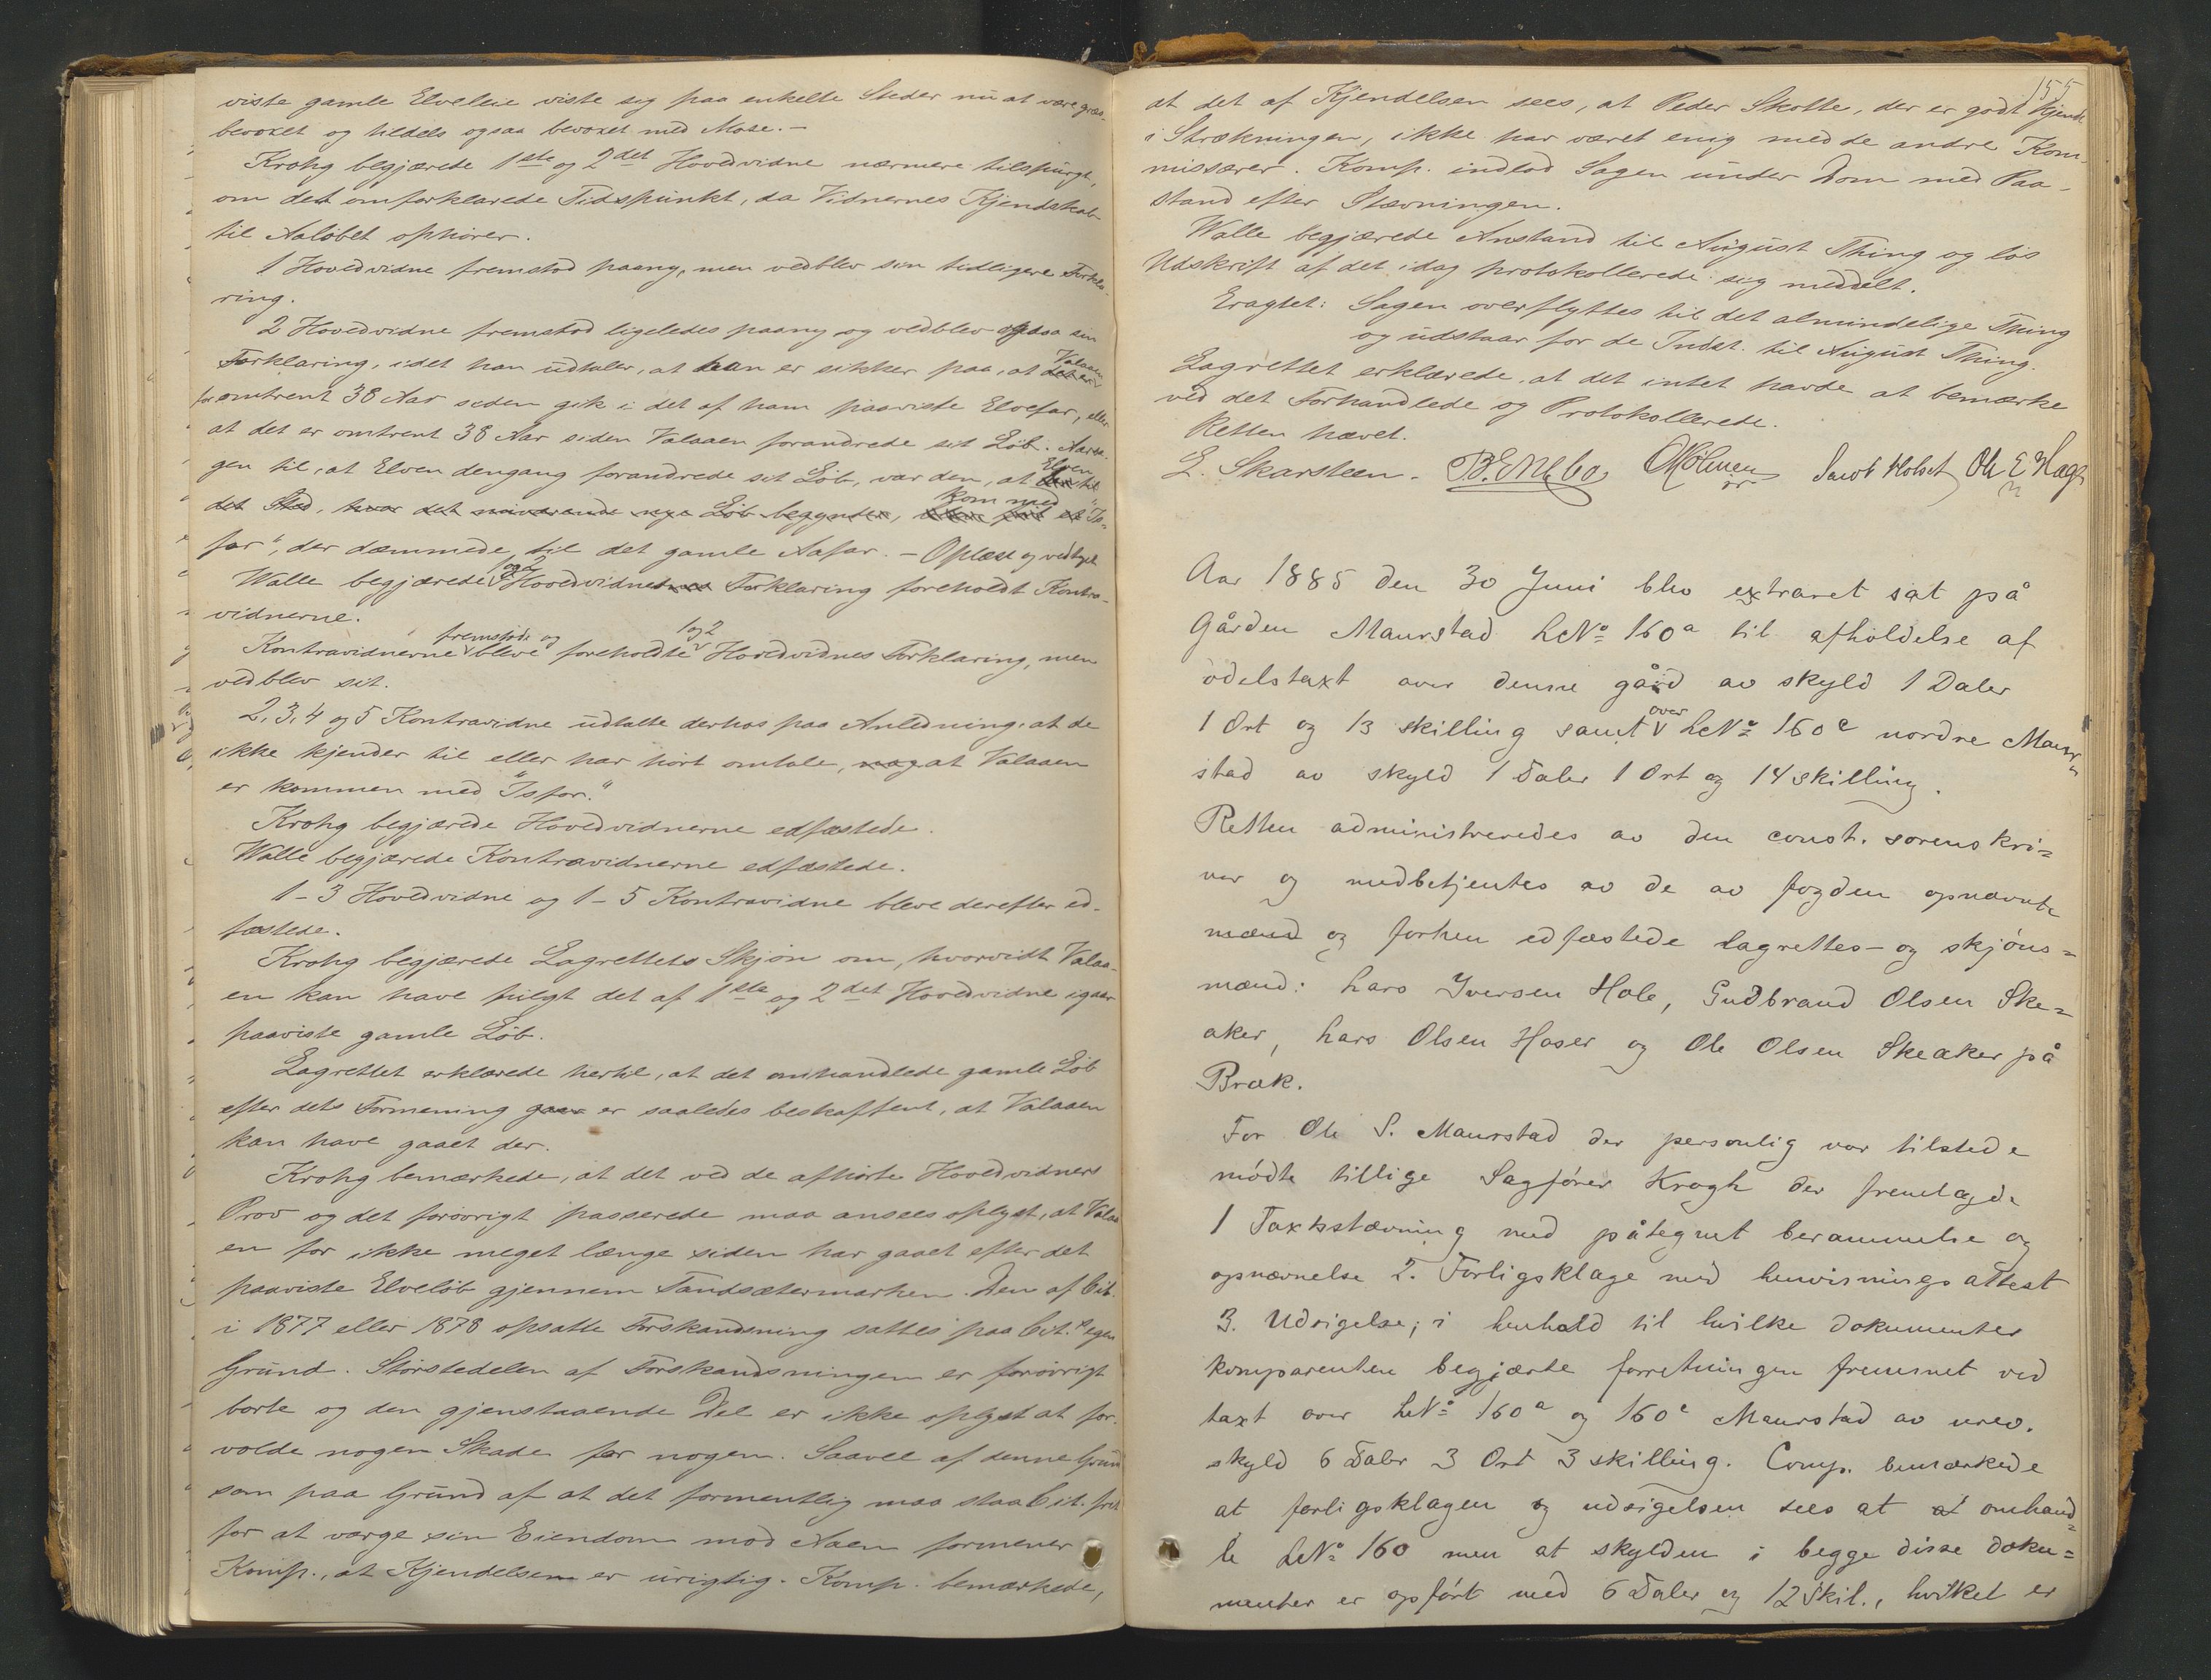 viste gamle Elveleie viste sig paa enkelte Steder nu at være græs-
bevoxet og tildels ogsaa bevoxet med Mose. -
Krohg begjærede 1ste og 2det Hovedvidne nærmere tilspurgt,
om det omforklarede Tidspunkt, da Vidnernes Kjendskab
til Aaløbet ophører.
1 Hovedvidne fremstod paany, men vedblev sin tidligere Forkla-
ring.
2 Hovedvidne fremstod ligeledes paany og vedblev ogsaa sin
Forklaring, idet han udtaler, at han er sikker paa, at Valaaen
for omtrent 38 Aar siden gik i det af ham paaviste Elvefar, eller
at det er omtrent 38 Aar siden Valaaen forandrede sit Løb. Aarsa-
gen til, at Elven dengang forandrede sit Løb, var den, at Elven
det Sted, hvor det nuværende nye Løb begynder, kom med "Is-
far", der dæmmede til det gamle Aafar. - Oplæst og vedtaget
Walle begjærede 1 og 2 Hovedvidnes Forklaring foreholdt Kontra-
vidnerne.
Kontravidnerne fremstode og bleve foreholdte 1 og 2 Hovedvidnes Forklaring, men
vedblev sit.
2, 3, 4 og 5 Kontravidne udtalte derhos paa Anledning, at de
ikke kjender til eller har hørt omtale, at Valaaen
er kommen med "Isfar."
Krohg begjærede Hovedvidnerne edfæstede.
Walle begjærede Kontravidnerne edfæstede.
1-3 Hovedvidne og 1-5 Kontravidne bleve derefter ed-
fæstede.
Krohg begjærede Lagrettets Skjøn om, hvorvidt Valaa-
en kan have fulgt det af 1ste og 2det Hovedvidne igaar
paaviste gamle Løb.
Lagrettet erklærede hertil, at det omhandlede gamle Løb
efter dets Formening er saaledes beskaffent, at Valaaen
kan have gaaet der.
Krohg bemærkede, at det ved de afhørte Hovedvidners
Prov og det forøvrigt passerede maa ansees oplyst, at Valaa-
en for ikke meget længe siden har gaaet efter det
paaviste Elveløb gjennem Sandsætermarken. Den af Cit.
i 1877 eller 1878 opsatte Forskandsning sattes paa Cit.s egen
Grund. Størstedelen af Forskandsningen er forøvrigt
borte og den gjenstaaende Del er ikke oplyst at for-
volde nogen Skade for nogen. Saavel af denne Grund
som paa Grund af at det formentlig maa staa Cit. frit
for at værge sin Eiendom mod Aaen formener
Komp., at Kjendelsen er urigtig. Komp. bemærkede,
155
at det af Kjendelsen sees, at Peder Skotte, der er godt kjendt
i Strækningen, ikke har været enig med de andre Kom-
missærer. Komp. indlod Sagen under Dom med Paa-
stand efter Stævningen.
Walle begjærede Anstand til August Thing og løs
Udskrift af det idag protokollerede sig meddelt.
Eragtet: Sagen overflyttes til det almindelige Thing
og udstaar for de Indst. til August Thing.
Lagrettet erklærede, at det intet havde at bemærke
ved det Forhandlede og Protokollerede.
Retten hævet.
E. Skarsteen. OHolmen Jacob Holset Ole E Hage
Aar 1885 den 30 Juni blev extraret sat på
Gården Maurstad LNo 160a til afholdelse af
odelstaxt over denne gård av skyld 1 Daler
1 Ort og 13 skilling samt over LNo 160c nordre Maur=
stad av skyld 1 Daler 1 Ort og 14 skilling.
Retten administreredes av den const. sorenskri=
ver og medbetjentes av de av fogden opnævnte
mænd og forhen edfæstede lagrettes- og skjöns=
mænd: Lars Iversen Hole, Gudbrand Olsen Ske=
aker, Lars Olsen Hoser og Ole Olsen Skeaker på
Bræk.
For Ole S. Maurstad der personlig var tilstede
mödte tillige Sagförer Krogh der fremlagde
1 Taxtstævning med påtegnet berammelse og
opnævnelse 2. Forligsklage med henvisningsattest
3. Udsigelse; i henhold til hvilke dokumenter
komparenten begjærte forretningen fremmet ved
taxt over LNo 160a og 160c Maurstad av urev.
skyld 6 Daler 3 Ort 3 skilling. Comp. bemærkede
at forligsklagen og udsigelsen sees at omhand=
le LNo 160 men at skylden i begge disse doku=
menter er opfört med 6 Daler og 12 Skil., hvilket er